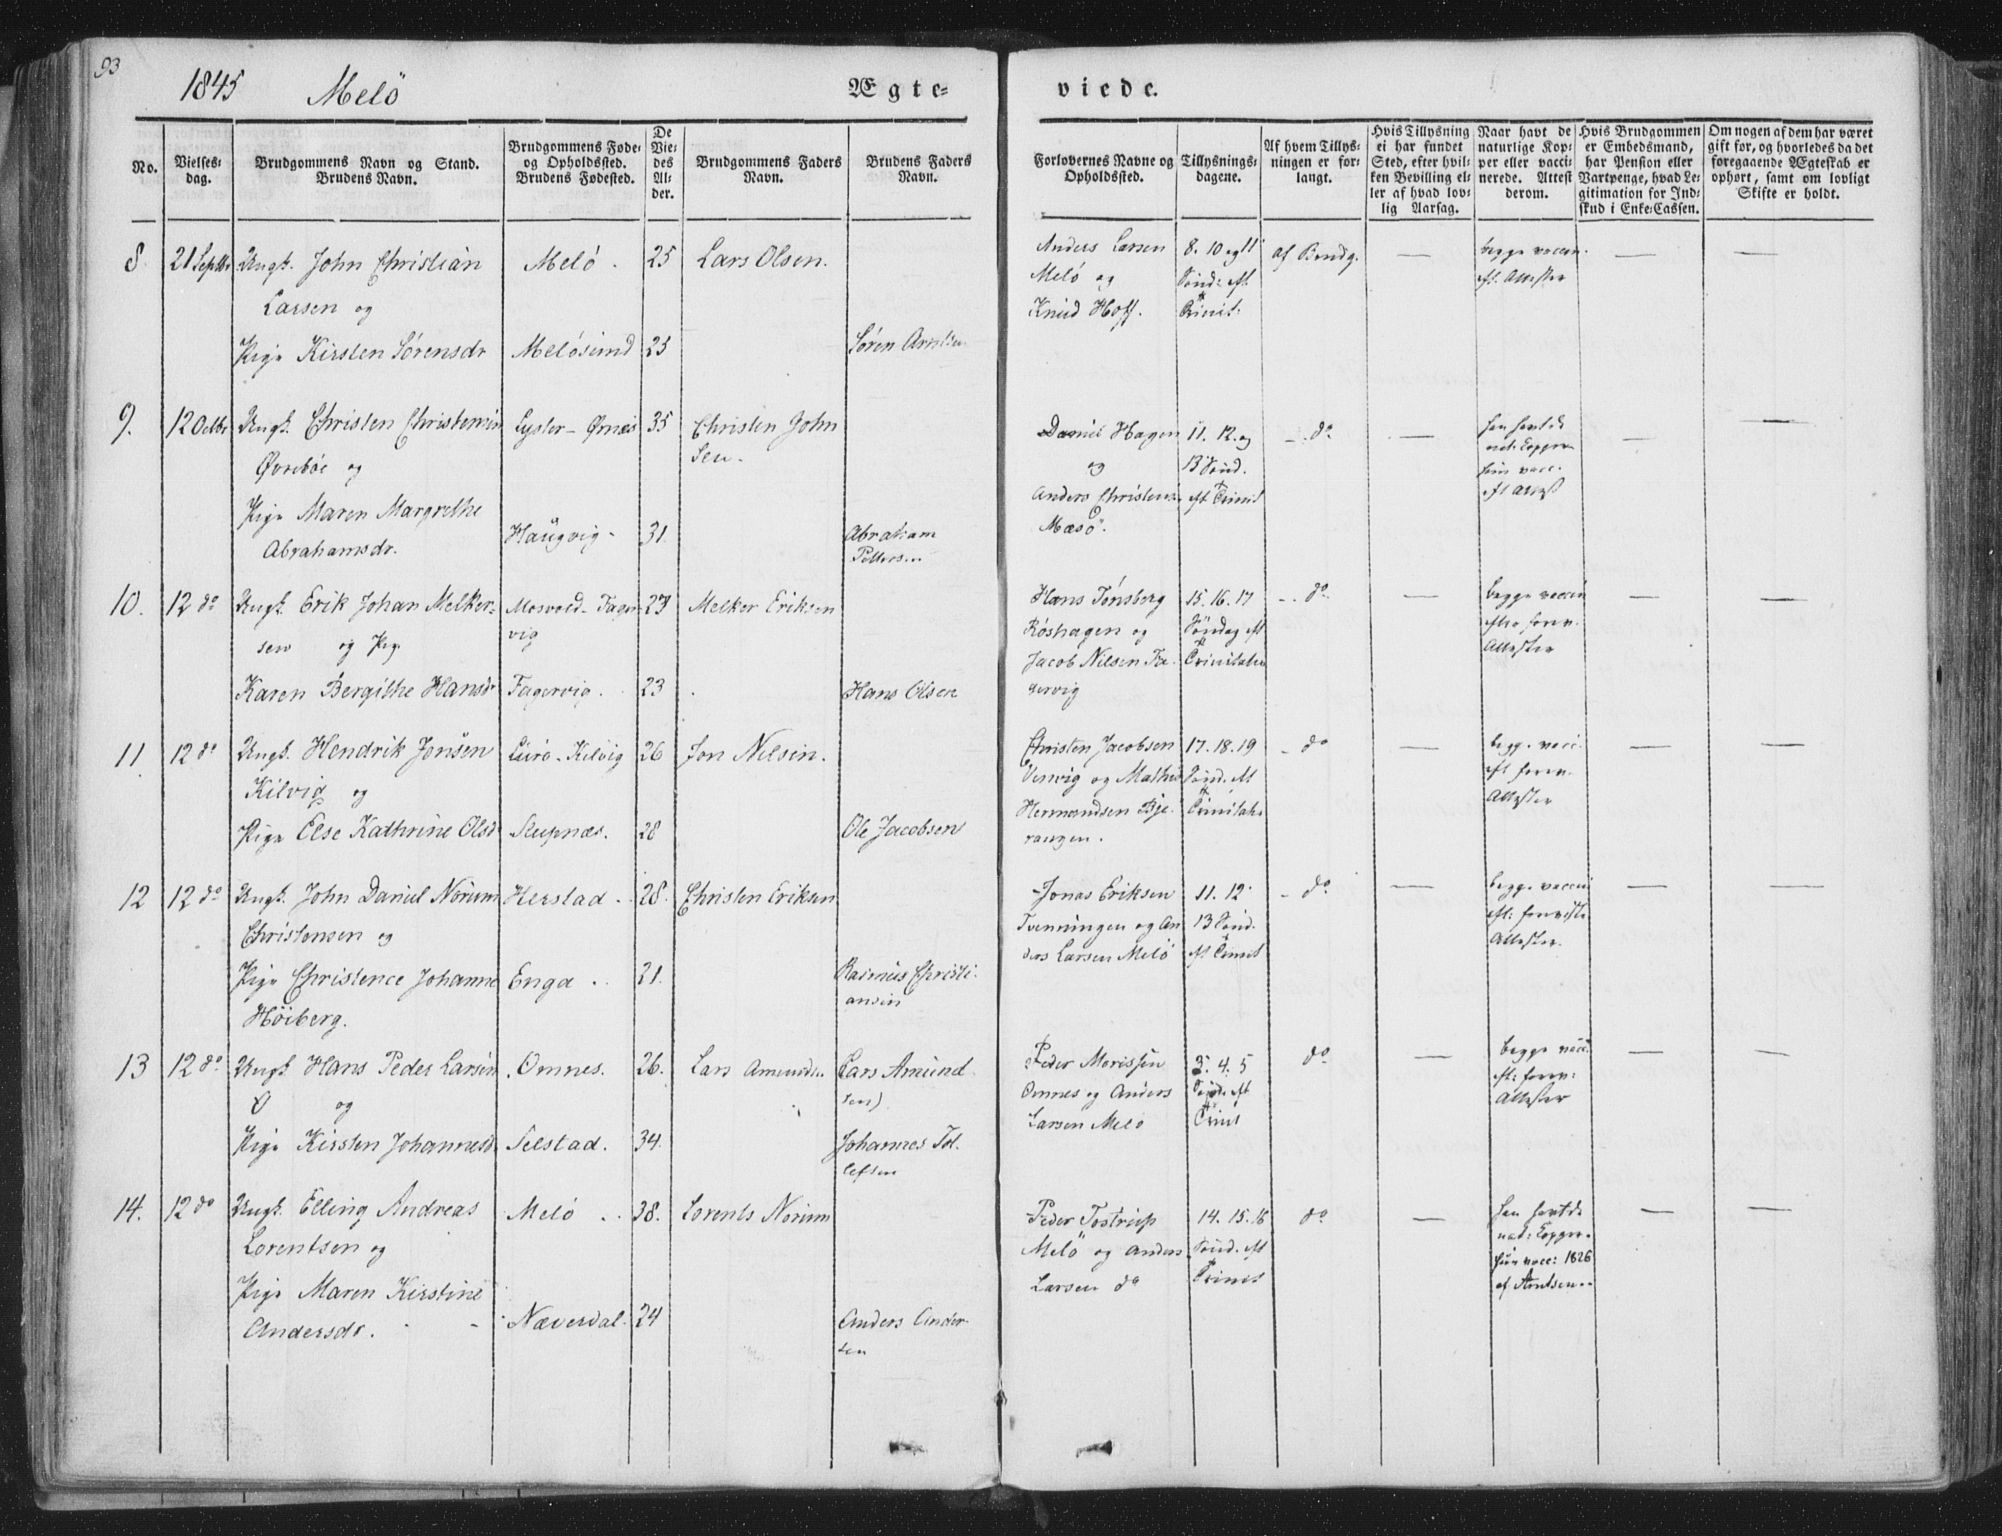 93
1845 Melö Ægte= viede.
No.
Vielses=
dag.
Brudgommens Navn og Stand.
Brudens Navn.
Brudgommens Føde=
og Opholdssted.
Brudens Fødested.
De
Vie=
des
Al=
der.
Brudgommens Faders
Navn.
Brudens Faders
Navn.
Forlovernes Navne og
Opholdssted.
Tillysnings=
dagene.
Af hvem Tillys=
ningen er for=
langt.
Hvis Tillysning
ei har fundet
Sted, efter hvil=
ken Bevilling el=
ler af hvad lov=
lig Aarsag.
Naar havt de
naturlige Kop=
per eller vacci=
nerede. Attest
derom.
Hvis Brudgommen
er Embedsmand,
har Pension eller
Vartpenge, hvad Le=
gitimation for Ind=
skud i Enke=Cassen.
Om nogen af dem har været
gift før, og hvorledes da det
foregaaende Ægteskab er
ophørt, samt om lovligt
Skifte er holdt.
8. 21 Septbr Ungk. John Christian
Larsen og
Melö. 25 Lars Olsen.
Pige Kirsten Sörensdr Melösund 25 Sören Arntsen
Anders Larsen
Melö og
Knud Hoff.
8. 10 og 11
Sönd: eft
Trinit:
af Brudg. — begge vaccin.
eft. Attester
— —
9. 12 Octbr Ungk. Christen Christensen
Øvrebøe og
Lyster - Ørnes 35 Christen John
sen.
Pige Maren Margrethe
Abrahamsdr.
Haugvig - 31 Abraham
Pettersen
Daniel Hagen
og
Anders Christens.
Mæsö.
11. 12. og
13 Sönd.
eft Trinit
- do — han havt de
nat: Kopper
hun vacc.
eft attest
— —
10. 12 do Ungk. Erik Johan Melker=
sen og Pige
Mosvold - Fager
vig
27 Melker Eriksen
Karen Bergithe Hansdr Fagervig. 23 Hans Olsen
Hans Tönsberg
Röshagen og
Jacob Nilsen Fa=
gervig
15. 16. 17
Söndag eft
Trinitatis
- do — begge vaccin
efter forev.
Attester
— —
11. 12 do Ungk. Hendrik Jonsen
Kilvig og
Lurö - Kilvig 26 Jon Nilsen.
Pige Else Kathrine Olsdr Stupnæs. 28 Ole Jacobsen
Christen Jacobsen
og Mathis
Hermandsen Bje=
rangen.
17. 18. 19
Sönd. eft
Trinitatis
- do — begge vacci.
eft forev.
Attester
— —
12 12 do Ungk. John Daniel Norum
Christensen og
Herstad. 28. Christen Eriksen
Pige Christence Johanne
Höiberg.
Enga. 21. Rasmus Christi=
ansen
Jonas Eriksen
Tvenningen og An
ders Larsen Melö
11. 12.
13 Sönd.
eft Trinit
- do — begge vaccin
eft: foreviste
Attester.
— —
13 12 do Ungk. Hans Peder Larsen
og
Omnes. 26. Lars Amundsen Lars Amund
sen)
Pige Kirsten Johannesdr Selstad. 34. Johannes Tol
lefsen
Peder Morissen
Omnes og Anders
Larsen Melö
3. 4. 5
Sönd. eft
Trinit
do — begge vacc.
eft: forev:
Attester
— —
14. 12 do Ungk. Elling Andreas
Lorentsen og
Melö 38. Lorents Norum
Pige Maren Kirstine
Andersdr.
Næverdal. 24 Anders Ander
sen
Peder Tostrup
Melö og Anders
Larsen do
14. 15. 16
Sönd. eft
Trinit
do — han havt de
nat: Kopper
hun vacc: 1826
af Arntsen
— —